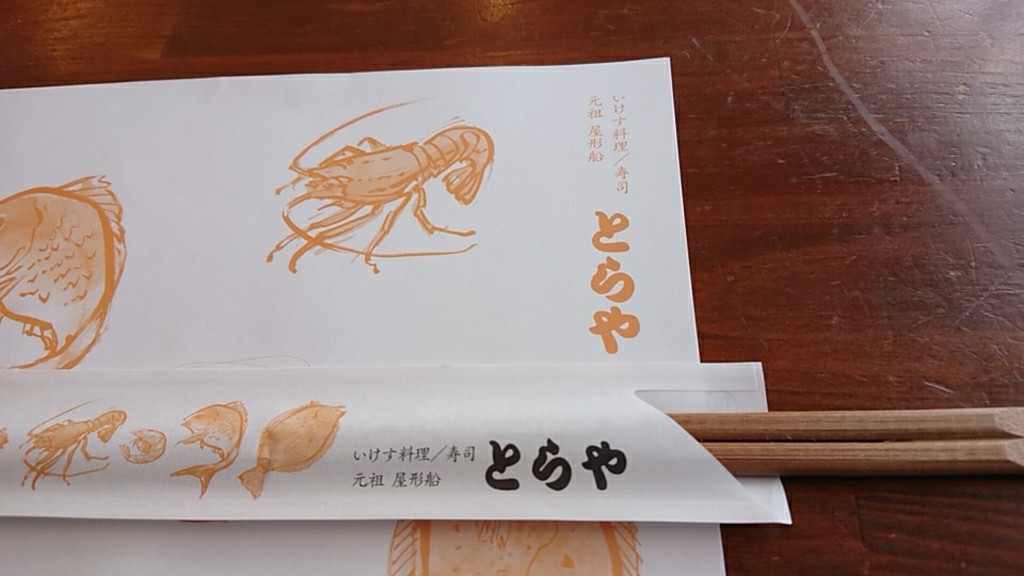 いけす料理／寿司
元祖 屋形船
とらや
いけす料理／寿司
元祖 屋形船
とらや